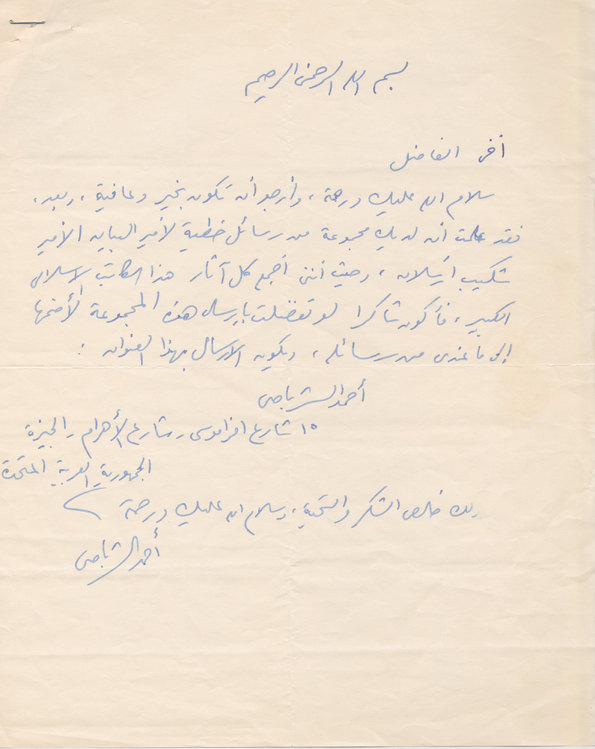 بسم الله الرحمن الرحيم
أخي الفاضل
سلام الله عليك ورحمة، وأرجو أن تكون بخير وعافية، وبعد.
فقد علمت أن لديك مجموعة من رسائل خطية لأمير البيان الأمير
شكيب أرسلان، وحيث أنني أجمع كل آثار هذا الكاتب الإسلامي
الكبير، فأكون شاكرا لو تفضلت بإرسال هذه المجموعة لأضمها
إلى ما عندي من رسائله، ويكون الإرسال بهذا العنوان:
أحمد الشرباصي
١٥ شارع شارع الأهرام - الجيزة
الجمهورية العربية المتحدة
ولك خالص الشكر والتحية، وسلام الله عليك ورحمة
أحمد الشرباصي